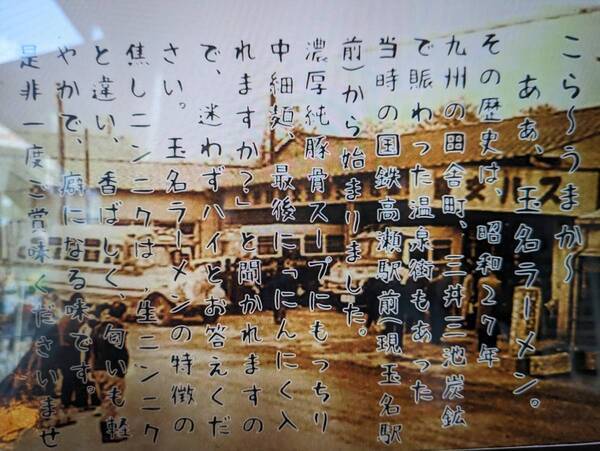 こら〜うまか〜
ああ、玉名ラーメン。
その歴史は、昭和27年
九州の田舎町、三井三池炭鉱
で賑わった温泉街もあった
当時の国鉄高瀬駅前(現玉名駅
前)から始まりました。
濃厚純豚骨スープにもっちり
中細麺、最後に「にんにく入
れますか?」と聞かれますの
で、迷わずハイとお答えくだ
さい。玉名ラーメンの特徴の
焦しニンニクは、生ニンニク
と違い、香ばしく、匂いも軽
やかで、癖になる味です。
是非一度ご賞味くださいませ
バス